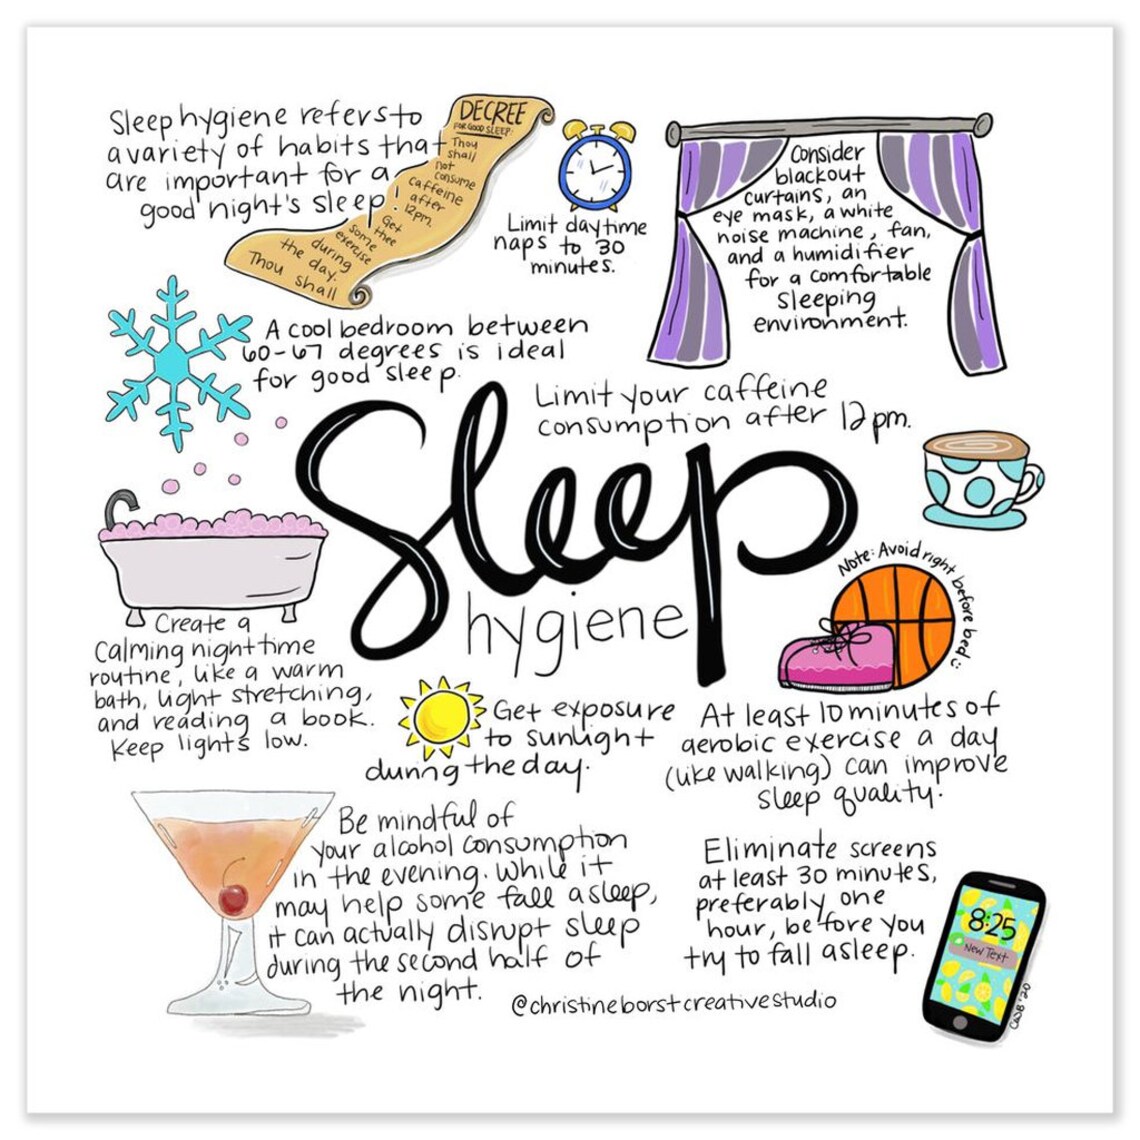 Sleep hygiene refers to
a variety of habits that
are important for a
good night's sleep.
DECREE
FOR GOOD SLEEP:
Thou
shall
not
consume
caffeine
after
12pm.
Get
thee
some
exercise
during
the day.
Thou shall
Limit daytime
naps to 30
minutes.
Consider
blackout
curtains, an
eye mask, a white
noise machine, fan,
and a humidifier
for a comfortable
sleeping
environment.
A cool bedroom between
60-67 degrees is ideal
for good sleep.
Limit your caffeine
consumption after 12pm.
Sleep
hygiene
Note: Avoid right before bed :)
Create a
calming nighttime
routine, like a warm
bath, light stretching,
and reading a book.
Keep lights low.
Get exposure
to sunlight
during the day.
At least 10 minutes of
aerobic exercise a day
(like walking) can improve
sleep quality.
Be mindful of
your alcohol consumption
in the evening. While it
may help some fall asleep,
it can actually disrupt sleep
during the second half of
the night.
Eliminate screens
at least 30 minutes,
preferably one
hour, before you
try to fall asleep.
8:25
New Text
@christineborstcreativestudio
CWB '20